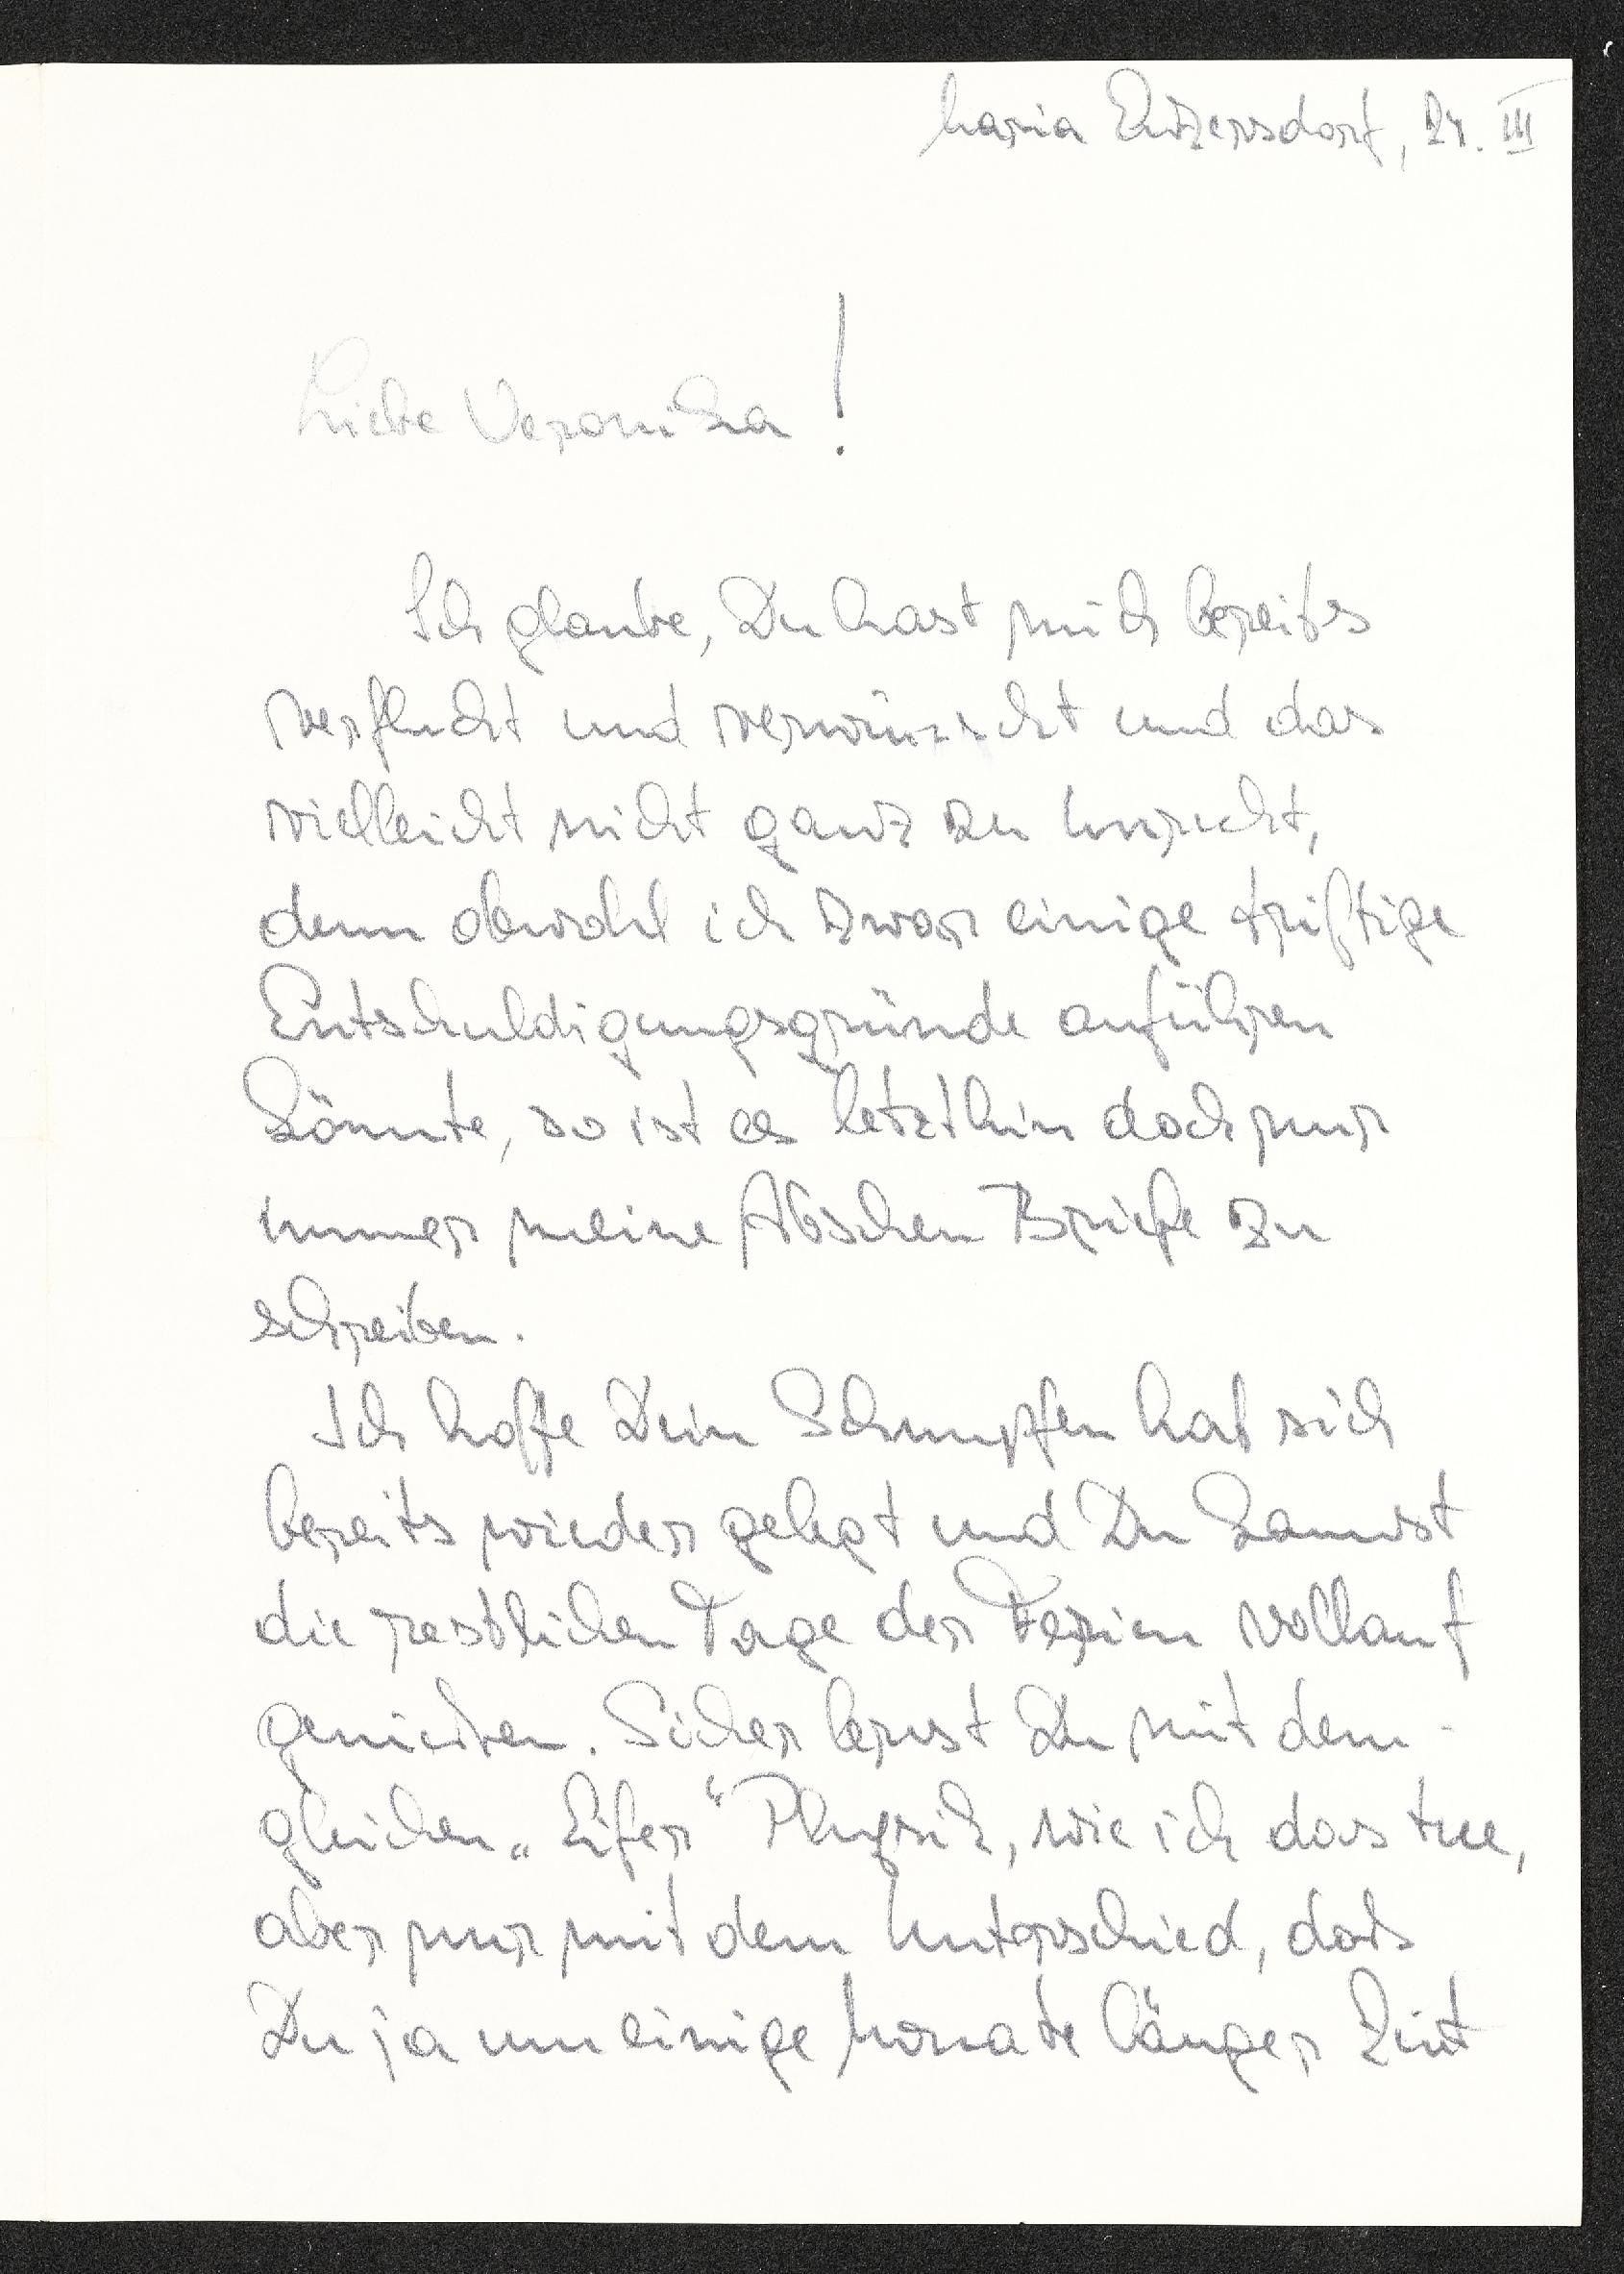 Maria Enzersdorf, 24. III
Liebe Veronika!
Ich glaube, Du hast mich bereits
verflucht und verwünscht und das
vielleicht nicht ganz zu Unrecht,
denn obwohl ich zwar einige triftige
Entschuldigungsgründe anführen
könnte, so ist es letzthin doch nur
immer meine Abscheu Briefe zu
schreiben.
Ich hoffe Dein Schnupfen hat sich
bereits wieder gelegt und Du kannst
die restlichen Tage der Ferien vollauf
genießen. Sicher lernst Du mit dem
gleichen „Eifer“ Physik, wie ich das tue,
aber nur mit dem Unterschied, daß
Du ja um einige Monate länger Zeit